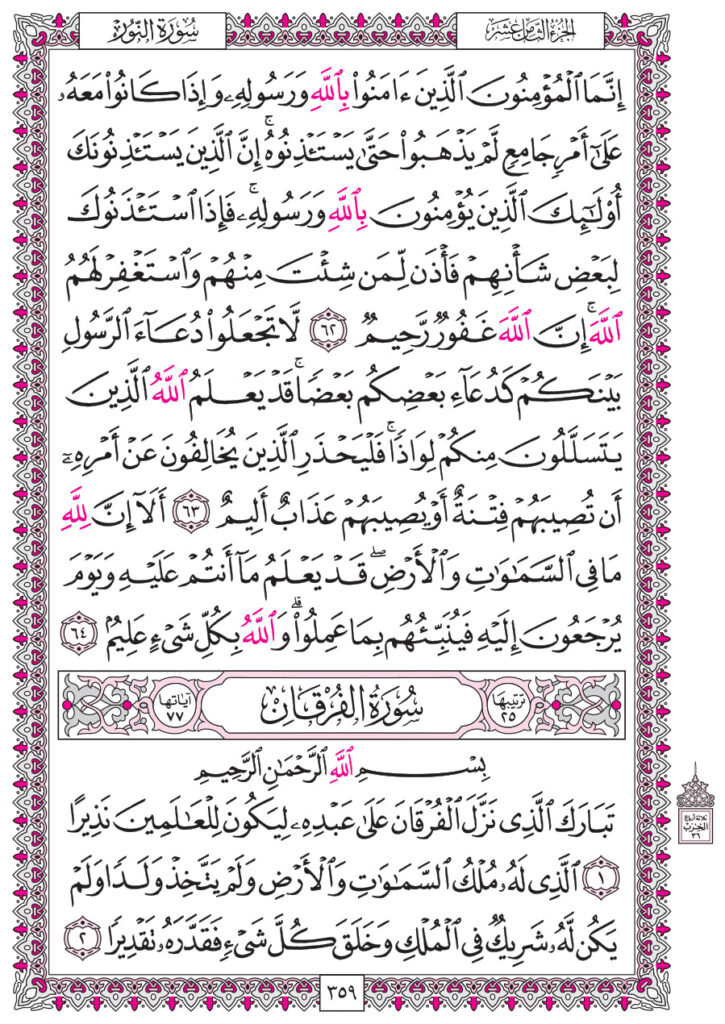 الجزء الثامن عشر
سُورَةُ النُّورِ
إِنَّمَا ٱلْمُؤْمِنُونَ ٱلَّذِينَ ءَامَنُوا۟ بِٱللَّهِ وَرَسُولِهِۦ وَإِذَا كَانُوا۟ مَعَهُۥ
عَلَىٰٓ أَمْرٍ جَامِعٍ لَّمْ يَذْهَبُوا۟ حَتَّىٰ يَسْتَـْٔذِنُوهُ ۚ إِنَّ ٱلَّذِينَ يَسْتَـْٔذِنُونَكَ
أُو۟لَـٰٓئِكَ ٱلَّذِينَ يُؤْمِنُونَ بِٱللَّهِ وَرَسُولِهِۦ ۚ فَإِذَا ٱسْتَـْٔذَنُوكَ
لِبَعْضِ شَأْنِهِمْ فَأْذَن لِّمَن شِئْتَ مِنْهُمْ وَٱسْتَغْفِرْ لَهُمُ
ٱللَّهَ ۚ إِنَّ ٱللَّهَ غَفُورٌ رَّحِيمٌ ٦٢ لَّا تَجْعَلُوا۟ دُعَآءَ ٱلرَّسُولِ
بَيْنَكُمْ كَدُعَآءِ بَعْضِكُم بَعْضًا ۚ قَدْ يَعْلَمُ ٱللَّهُ ٱلَّذِينَ
يَتَسَلَّلُونَ مِنكُمْ لِوَاذًا ۚ فَلْيَحْذَرِ ٱلَّذِينَ يُخَالِفُونَ عَنْ أَمْرِهِۦٓ
أَن تُصِيبَهُمْ فِتْنَةٌ أَوْ يُصِيبَهُمْ عَذَابٌ أَلِيمٌ ٦٣ أَلَآ إِنَّ لِلَّهِ
مَا فِى ٱلسَّمَـٰوَٰتِ وَٱلْأَرْضِ ۖ قَدْ يَعْلَمُ مَآ أَنتُمْ عَلَيْهِ وَيَوْمَ
يُرْجَعُونَ إِلَيْهِ فَيُنَبِّئُهُم بِمَا عَمِلُوا۟ ۗ وَٱللَّهُ بِكُلِّ شَىْءٍ عَلِيمٌۢ ٦٤
ترتيبها ٢٥
سُورَةُ الفُرْقَانِ
آياتها ٧٧
بِسْمِ ٱللَّهِ ٱلرَّحْمَـٰنِ ٱلرَّحِيمِ
تَبَارَكَ ٱلَّذِى نَزَّلَ ٱلْفُرْقَانَ عَلَىٰ عَبْدِهِۦ لِيَكُونَ لِلْعَـٰلَمِينَ نَذِيرًا
١ ٱلَّذِى لَهُۥ مُلْكُ ٱلسَّمَـٰوَٰتِ وَٱلْأَرْضِ وَلَمْ يَتَّخِذْ وَلَدًا وَلَمْ
يَكُن لَّهُۥ شَرِيكٌ فِى ٱلْمُلْكِ وَخَلَقَ كُلَّ شَىْءٍ فَقَدَّرَهُۥ تَقْدِيرًا ٢
ثلاثة أرباع
الحزب
٣٦
٣٥٩